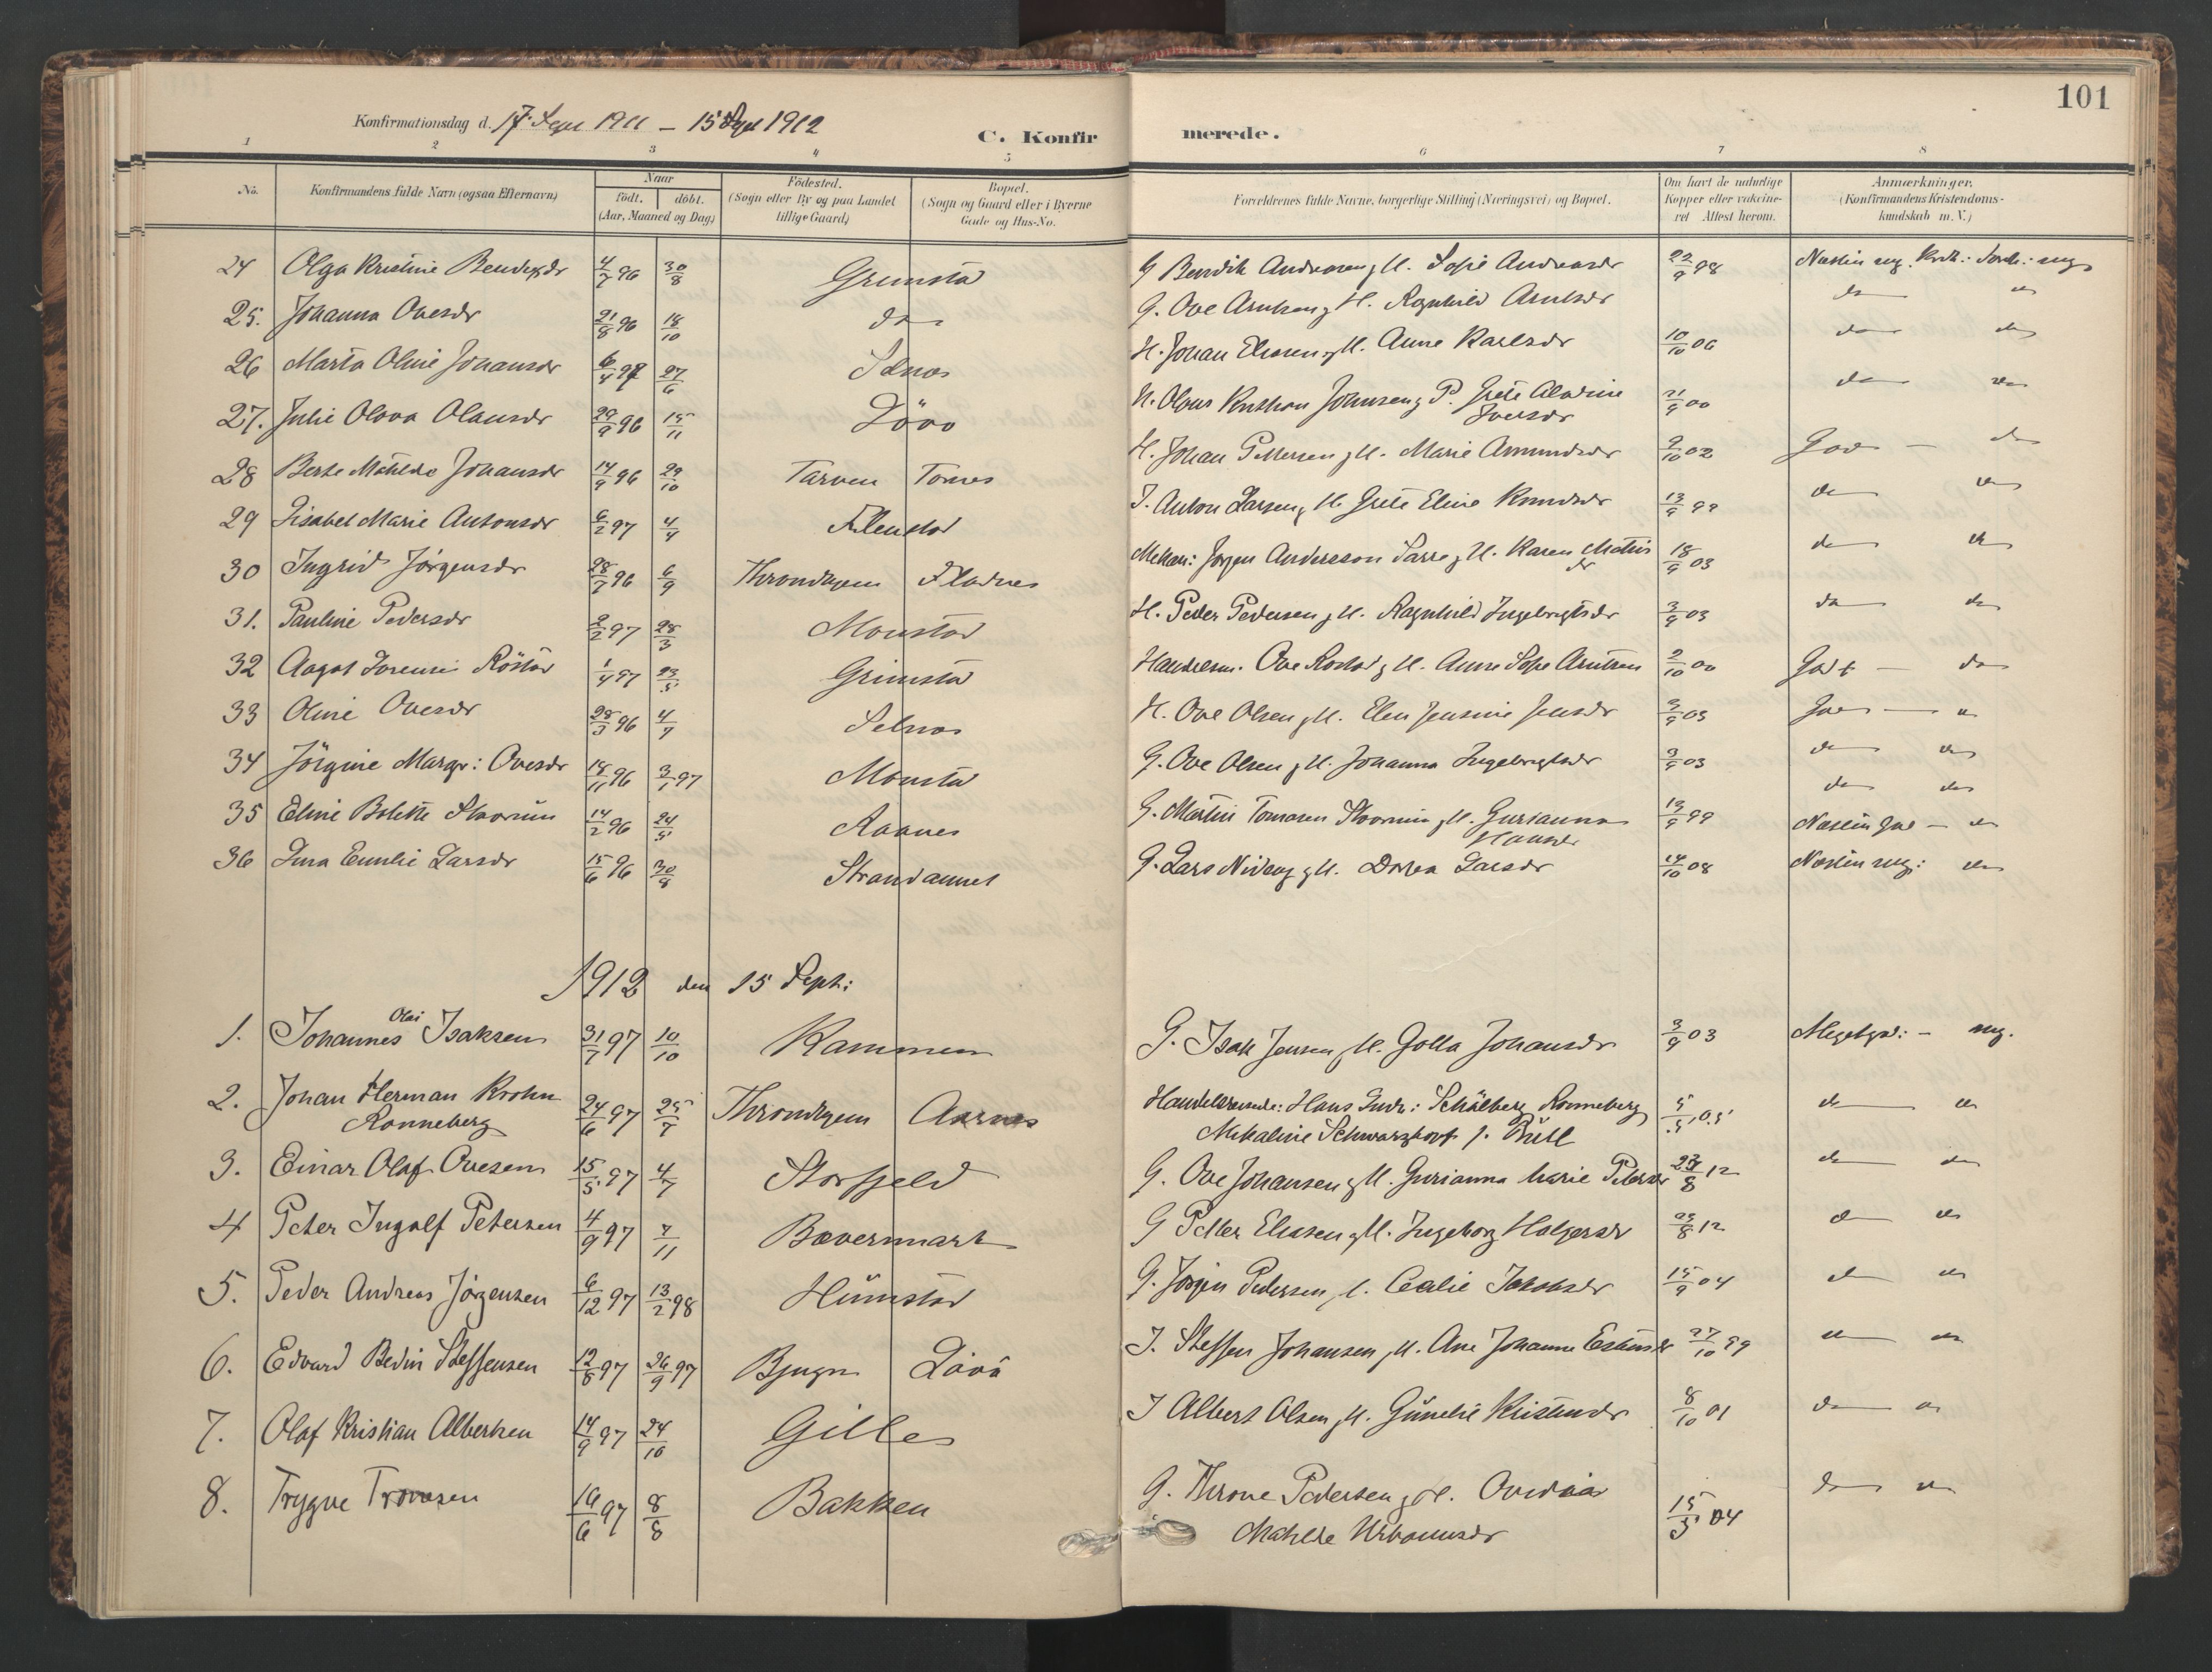 101
Konfirmationsdag d. 17. Sept 1911 – 15 Sept 1912
C. Konfirmerede.
1 2 3 4 5 6 7 8
No.
Konfirmandens fulde Navn (ogsaa Efternavn)
Naar
födt. döbt.
(Aar, Maaned og Dag)
Födested.
(Sogn eller By og paa Landet
tillige Gaard)
Bopæl.
(Sogn og Gaard eller i Byerne
Gade og Hus-No.
Forældrenes fulde Navne, borgerlige Stilling (Næringsvei) og Bopæl.
Om havt de naturlige
Kopper eller vakcine-
ret Attest herom.
Anmærkninger.
(Konfirmandens Kristendoms-
kundskab m. V.)
24 Olga Kristine 4/7 96 30/8 Grimsta G Bendik Andreasen, H. Sofie Andreasdr 22/9 98
25. Johanna Ovesdr 21/8 96 18/10 do G. Ove Arntsen, H. Ragnhild Arntsdr do
26 Marta Oline Johansdr 6/4 97 27/6 Selnes H. Johan Eliasen, H. Anne Karlsdr 10/10 06 do do
27. Julie Olava Olausdr 29/9 96 15/11 Lövö H. Olaus Kristian Johnsen, P. Grete Alvdine
Iversdr 21/9 00 do
28 Berte Matilde Johansdr 14/9 96 29/10 Tarven Tornes H. Johan Pettersen, H. Marie Amundsdr 9/10 02 God – do
29 Lisabet Marie Antonsdr 6/2 97 4/4 I. Anton Larsen, H. Grete Eline Knudsdr 13/9 99 do
30 Ingrid Jørgensdr 28/7 96 6/9 Throndhjem Jørgen Andersson H. Karen Mathis
dr 18/9 03 do
31. Pauline Pedersdr 2/2 97 28/3 Monstad H. Peder Pedersen, H. Ragnhild Ingebrigtsdr 3/9 03 do do
32 Aagot Lorense Röstad 1/4 97 23/5 Grimsta Handelsm. Ove Rostad, H. Anne Sofie Arntsen 2/10 00 Godt – do
33 Oline Ovesdr 28/3 96 4/7 Selnes H. Ove Olsen, H. Elen Jensine Jensdr 3/9 03
34 Jörgine Margr: Ovesdr 18/11 96 3/1 97 Monsta G. Ove Olsen, H. Johanna Ingebrigtsdr 3/9 03 do do
35 Eline Bolette 14/2 96 24/5 Raanes G. Martin Tomasen H. Gurianna
13/9 99
36 Ina Emilie Larsdr 15/6 96 30/8 G. Lars H. Dorea Larsdr 14/10 08
1912 den 15 Sept:
1. Johannes Olai Isaksen 31/7 97 10/10 Rammen G. Isak Jensen, H. Golla Johansdr 3/9 03
2. Johan Herman Krohn
Ronneberg 24/6 97 25/7 Throndhjem Aarnes Hans Ronneberg
Mikaline Schwarzkopf f. 5/5 05 do
3. Einar Olaf Ovesen 15/5 97 4/7 Storfjeld G. Ove Johansen, H. Gurianna Marie Petersdr 23/8 12 do do
4 Peter Ingolf Petersen 4/9 97 7/11 Bævermark G Petter Eliasen, H. Ingeborg Holgersdr 23/8 12 do
5. Peder Andreas Jørgensen 6/12 97 13/2 98 Humstad G. Jörgen Pedersen, H. Cecilie Jakobsdr 15/9 04 do
6. Edvard Bedin Steffensen 12/8 97 26/9 97 Bjugn Lövö I. Steffen Johansen, H. Ane Johanne 27/10 99 do
7. Olaf Kristian Albertsen 14/9 97 24/10 Gilles I Albert Olsen, H. Gunelie Kristensdr 8/10 01 do
8. Trygve Tronesen 16/6 97 8/8 Bakken G. Throne Pedersen, H. Ovedia
Matilde Urbanusdr 15/5 04 do